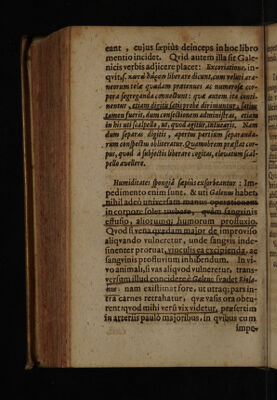 eant, cujus sæpius deinceps in hoc libro
mentio incidet. Qvid autem illa sit Gale-
nicis verbis adjicere placet: Excoriatione, in-
qvit, liberare dicunt, cum veluti ara-
neorum telæ quædam prætenues ac numerosæ cor-
pora segreganda connectunt: quæ autem ita conti-
nentur, etiam digitu satis probè dirimuntur, satius
tamen fuerit, dum consectionem administras, etiam
in his uti scalpello, ut, quod agitur, intuearis. Nam
dum separas digitis, apertus partium separanda-
rum conspectus obliteratur. Quamobrem præstat cor-
pus, quod à subjectis liberare cogitas, elevatum scal-
pello avellere.
Humiditates spongiâ sæpius exsorbeantur: Im-
pedimento enim sunt, & uti Galenus habet,
nihil adeò universam manus operationem
in corpore solet turbare, quàm sangvinis
effusio, aliorumq; humorum profluxio.
Qvod si vena quædam major de improviso
aliqvando vulneretur, unde sangvis inde-
sinenter proruat, vinculis ea excipienda, ac
sangvinis profluvium inhibendum. In vi-
vo animali, si vas aliqvod vulneretur, trans-
versum illud concidere Galeno svadet
nam existimat fore, ut utraq; pars in-
tra carnes retrahatur, quæ vasis ora obtu-
rent: qvod mihi verè vix videtur, præsertim
in arteriis pauló majoribus, in qvibus cum
impe-